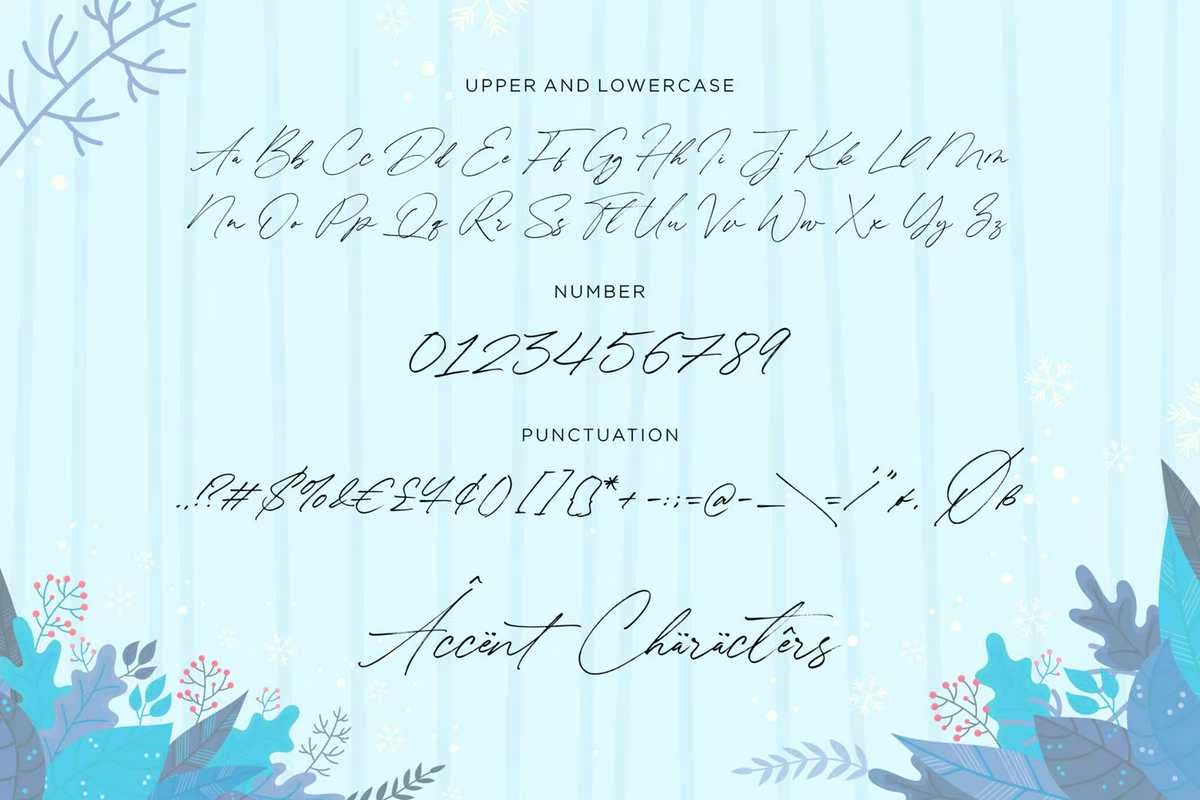 UPPER AND LOWERCASE
Aa Bb Cc Dd Ee Ff Gg Hh Ii Jj Kk Ll Mm
Nn Oo Pp Qq Rr Ss Tt Uu Vv Ww Xx Yy Zz
NUMBER
0123456789
PUNCTUATION
.,!?#$%&€£¥¢()[]{}*+-:;=@-_\=/'"
Âccënt Chäräctêrs